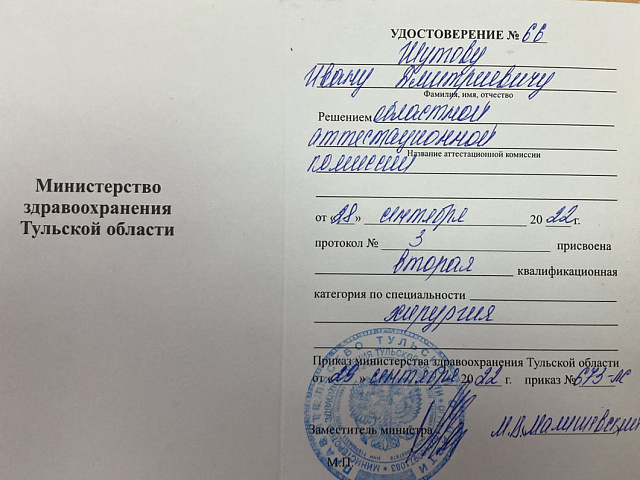 Министерство
здравоохранения
Тульской области
УДОСТОВЕРЕНИЕ № 66
Шутову
Ивану Дмитриевичу
Фамилия, имя, отчество
Решением областной
аттестационной
Название аттестационной комиссии
комиссии
от «28» сентября 2022 г.
протокол № 3 присвоена
вторая квалификационная
категория по специальности
хирургия
Приказ министерства здравоохранения Тульской области
от «29» сентября 2022 г. приказ № 675-м
Заместитель министра М.В.Малишевский
М.П.